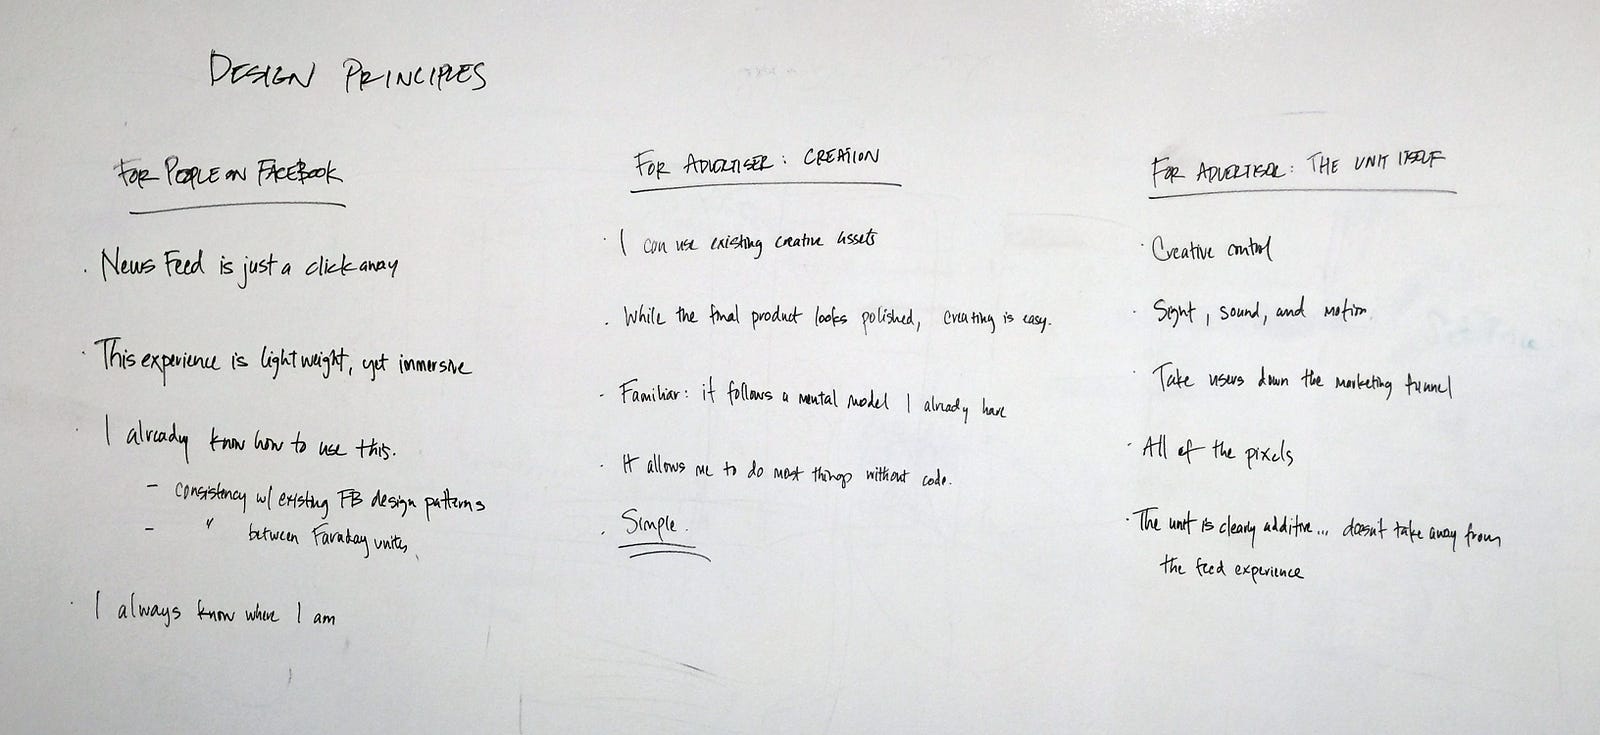 DESIGN PRINCIPLES
FOR PEOPLE ON FACEBOOK
· News Feed is just a click away
· This experience is lightweight, yet immersive
· I already know how to use this.
- consistency w/ existing FB design patterns
- " between Faraday units.
· I always know where I am
FOR ADVERTISER: CREATION
· I can use existing creative assets
· While the final product looks polished, creating is easy.
· Familiar: it follows a mental model I already have
· It allows me to do most things without code.
· Simple.
FOR ADVERTISER: THE UNIT ITSELF
· Creative control
· Sight, sound, and motion
· Take users down the marketing funnel
· All of the pixels
· The unit is clearly additive... doesn't take away from
the feed experience